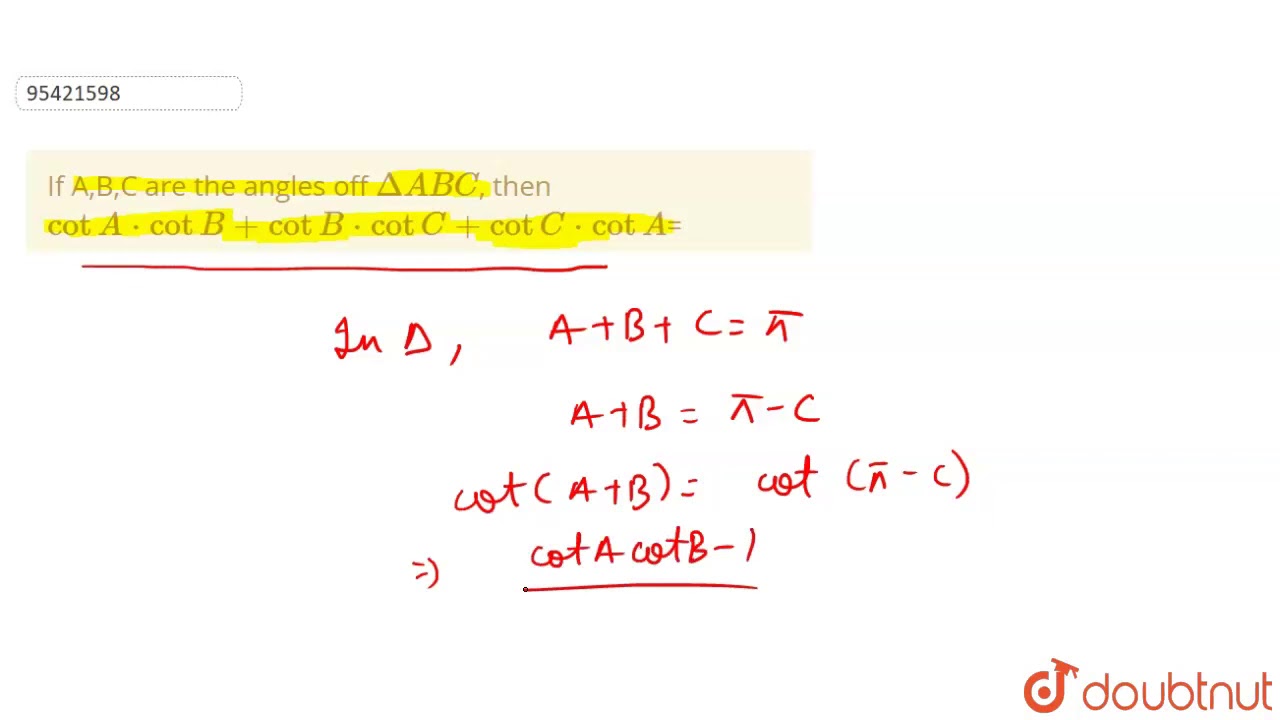 95421598
If A,B,C are the angles off ΔABC, then
cot A · cot B + cot B · cot C + cot C · cot A=
In Δ, A+B+C=π
A+B = π-C
cot(A+B)= cot (π-C)
=) cotA cotB-1
doubtnut